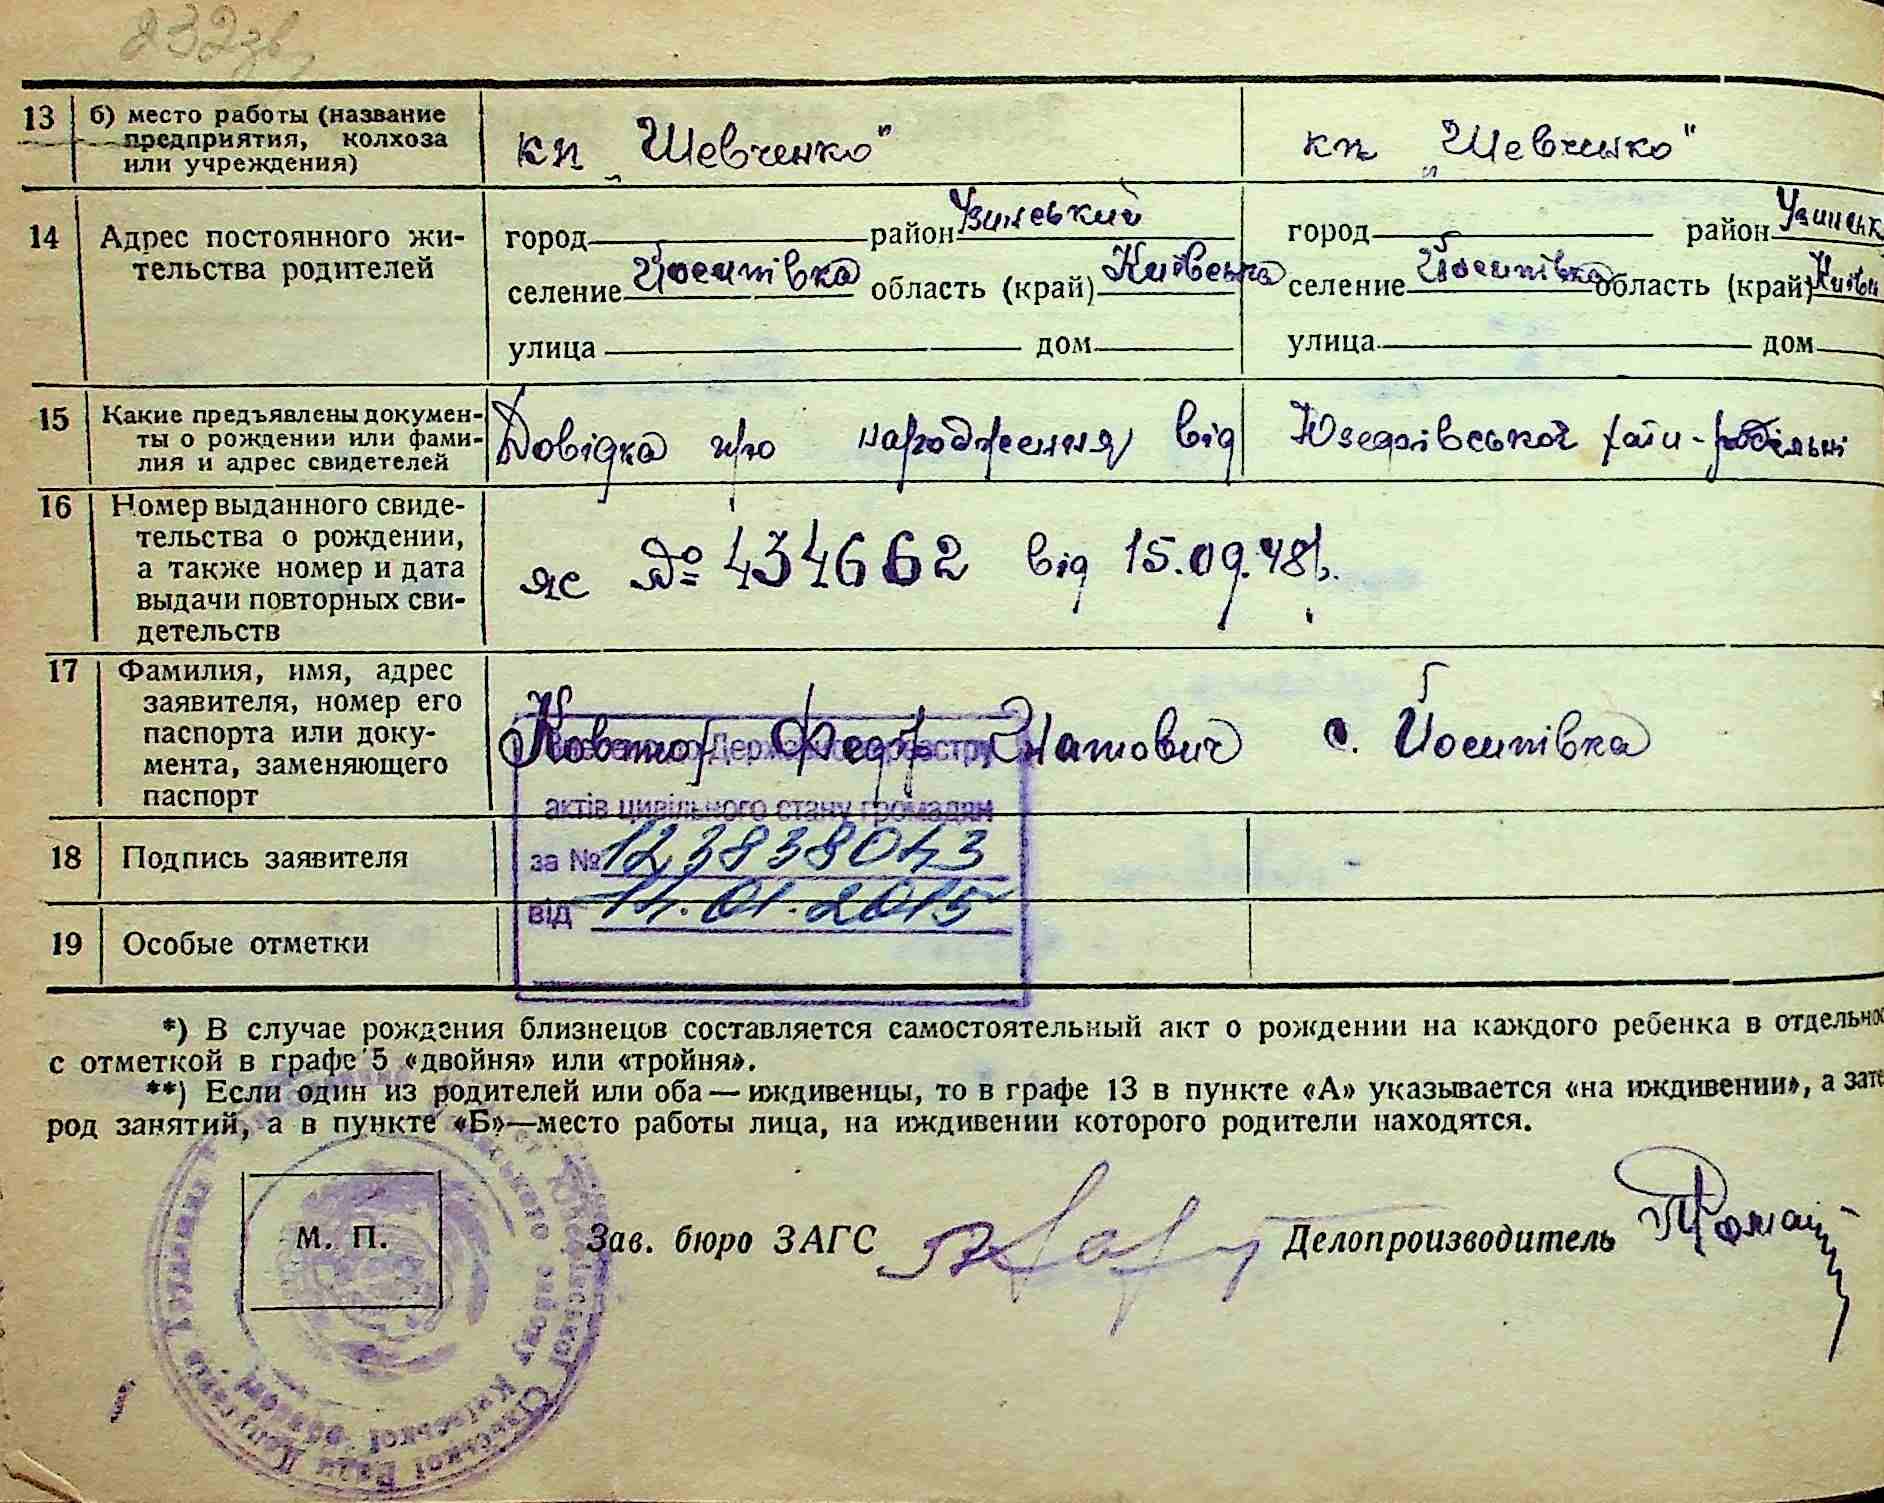 232зв
13 б) место работы (название предприятия, колхоза или учреждения) кп „Шевченко" кп „Шевченко"
14 Адрес постоянного жительства родителей
город район Узинський город район Узинськ
селение Йосипівка область (край) Київська селение Йосипівка область (край) Київ
улица дом улица дом
15 Какие предъявлены документы о рождении или фамилия и адрес свидетелей Довідка про народження від Юзефівської
16 Номер выданного свидетельства о рождении, а также номер и дата выдачи повторных свидетельств ЯС № 434662 від 15.09.48р.
17 Фамилия, имя, адрес заявителя, номер его паспорта или документа, заменяющего паспорт Ковтор Федір Гнатович с. Йосипівка
Державного реєстру
актів цивільного стану громадян
18 Подпись заявителя
за № 123838043
19 Особые отметки
від 14.01.2015
*) В случае рождения близнецов составляется самостоятельный акт о рождении на каждого ребенка в отдельнос
с отметкой в графе 5 «двойня» или «тройня».
**) Если один из родителей или оба — иждивенцы, то в графе 13 в пункте «А» указывается «на иждивении», а зате
род занятий, а в пункте «Б»—место работы лица, на иждивении которого родители находятся.
М. П.
Зав. бюро ЗАГС Делопроизводитель
Сільської Ради Депутатів Трудящих
Київської області